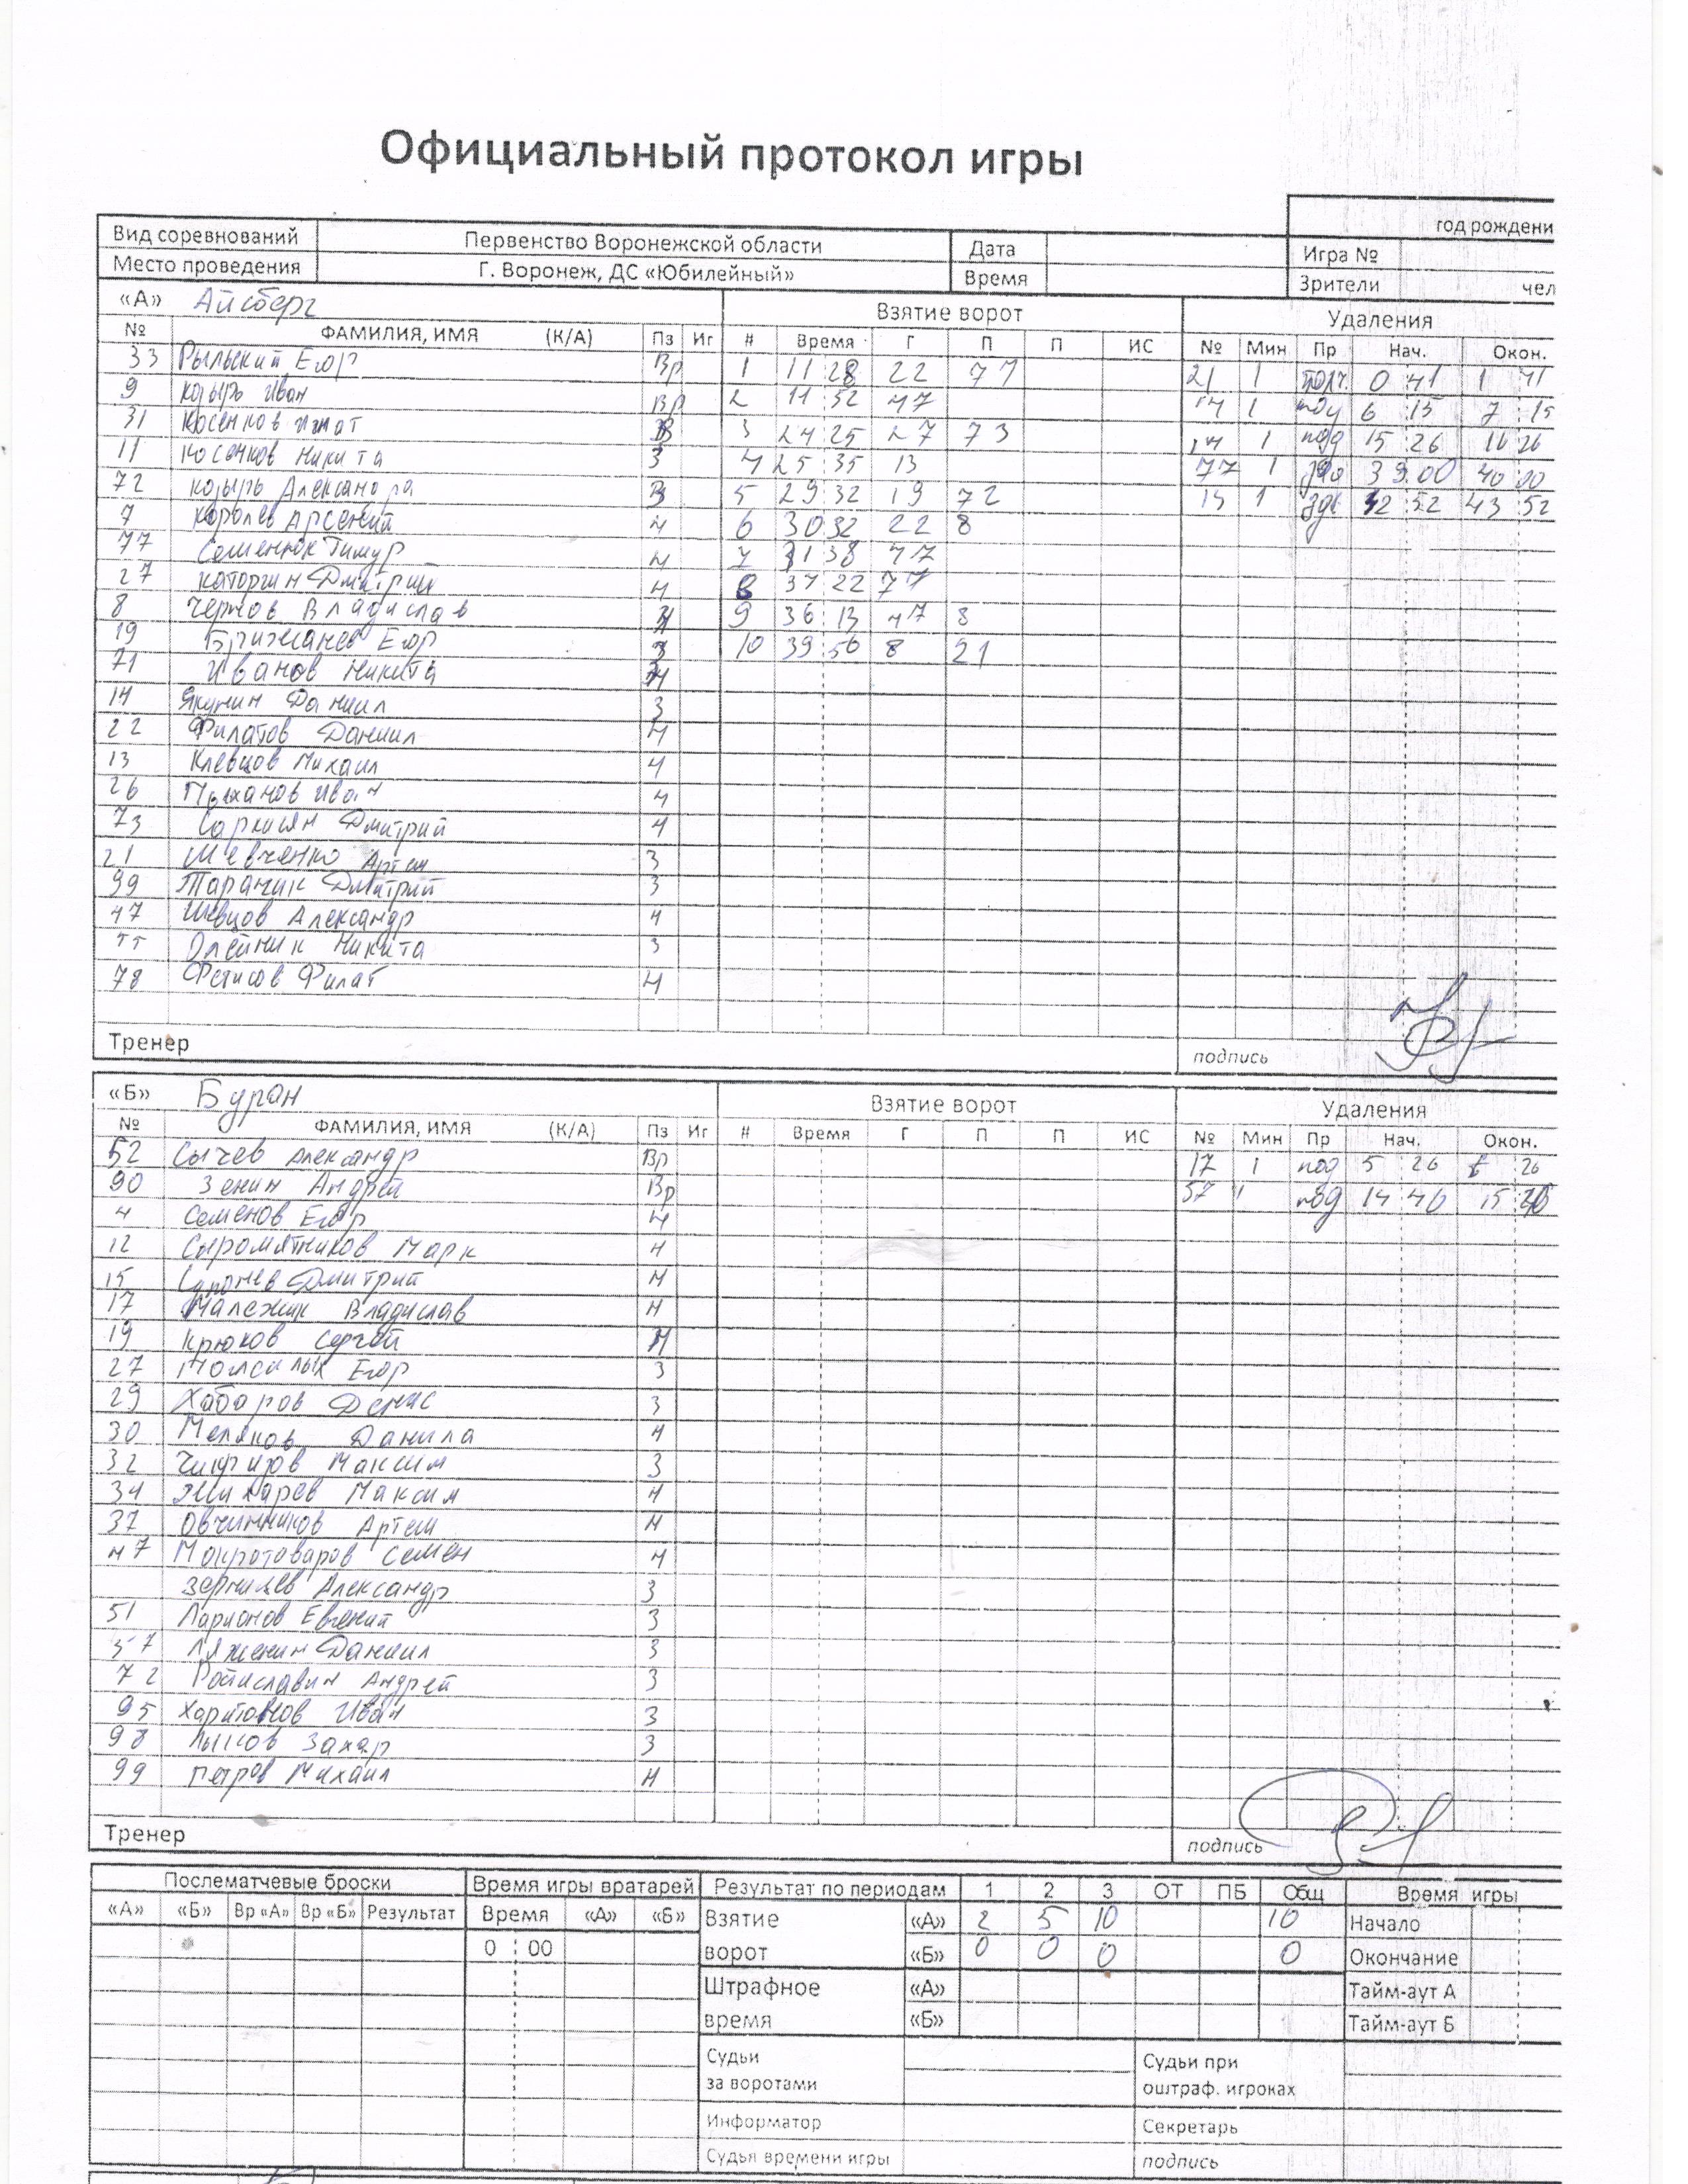 Официальный протокол игры
год рождени
Вид соревнований Первенство Воронежской области Дата Игра №
Место проведения Г. Воронеж, ДС «Юбилейный» Время Зрители чел
«А» Айсберг Взятие ворот Удаления
№ ФАМИЛИЯ, ИМЯ (К/А) Пз Иг # Время Г П П ИС № Мин Пр Нач. Окон.
33 Рыльский Егор Вр 1 11 28 22 77 21 1 0 41 1 41
9 Козырь Иван Вр 2 11 52 47 1 6 15 7 15
31 Косенков Игнат 3 24 25 27 73 1 под 15 26 16 26
11 Косенков Никита З 4 25 35 13 77 1 39 00 40 00
72 Козырь Александра З 5 29 32 19 72 13 1 42 52 43 52
7 Королев Арсений Н 6 30 32 22 8
77 Семенюк Тимур Н 7 31 38 47
27 Каторгин Дмитрий Н 8 37 22 77
8 Чернов Владислав Н 9 36 13 47 8
19 Брижанев Егор З 10 39 56 8 21
71 Иванов Никита Н
14 Якунин Даниил З
22 Филатов Даниил Н
13 Клевцов Михаил Н
26 Иван Н
73 Саркисян Дмитрий Н
21 Шевченко Артем З
99 Тараник Дмитрий З
47 Шевцов Александр Н
55 Олейник Никита З
78 Фетисов Филат Н
Тренер подпись
«Б» Буран Взятие ворот Удаления
№ ФАМИЛИЯ, ИМЯ (К/А) Пз Иг # Время Г П П ИС № Мин Пр Нач. Окон.
52 Сычев Александр Вр 17 1 под 5 26 6 26
90 Зенин Андрей Вр 57 1 под 14 46 15 46
4 Семенов Егор Н
12 Сыромятников Марк Н
15 Дмитрий Н
17 Малежик Владислав Н
19 Крюков Сергей Н
27 Егор З
29 Хабаров Денис З
30 Меляков Данила Н
32 Максим З
34 Жихарев Максим Н
37 Овчинников Артем Н
47 Мокротоваров Семен Н
Александр З
51 Ларионов Евгений З
57 Ляженин Даниил З
72 Ростиславин Андрей З
95 Харитонов Иван З
98 Лысов Захар З
99 Петров Михаил Н
Тренер подпись
Послематчевые броски Время игры вратарей Результат по периодам 1 2 3 ОТ ПБ Общ Время игры
«А» «Б» Вр «А» Вр «Б» Результат Время «А» «Б» Взятие «А» 2 5 10 10 Начало
0 : 00 ворот «Б» 0 0 0 0 Окончание
Штрафное «А» Тайм-аут А
время «Б» Тайм-аут Б
Судьи Судьи при
за воротами оштраф. игроках
Информатор Секретарь
Судья времени игры подпись